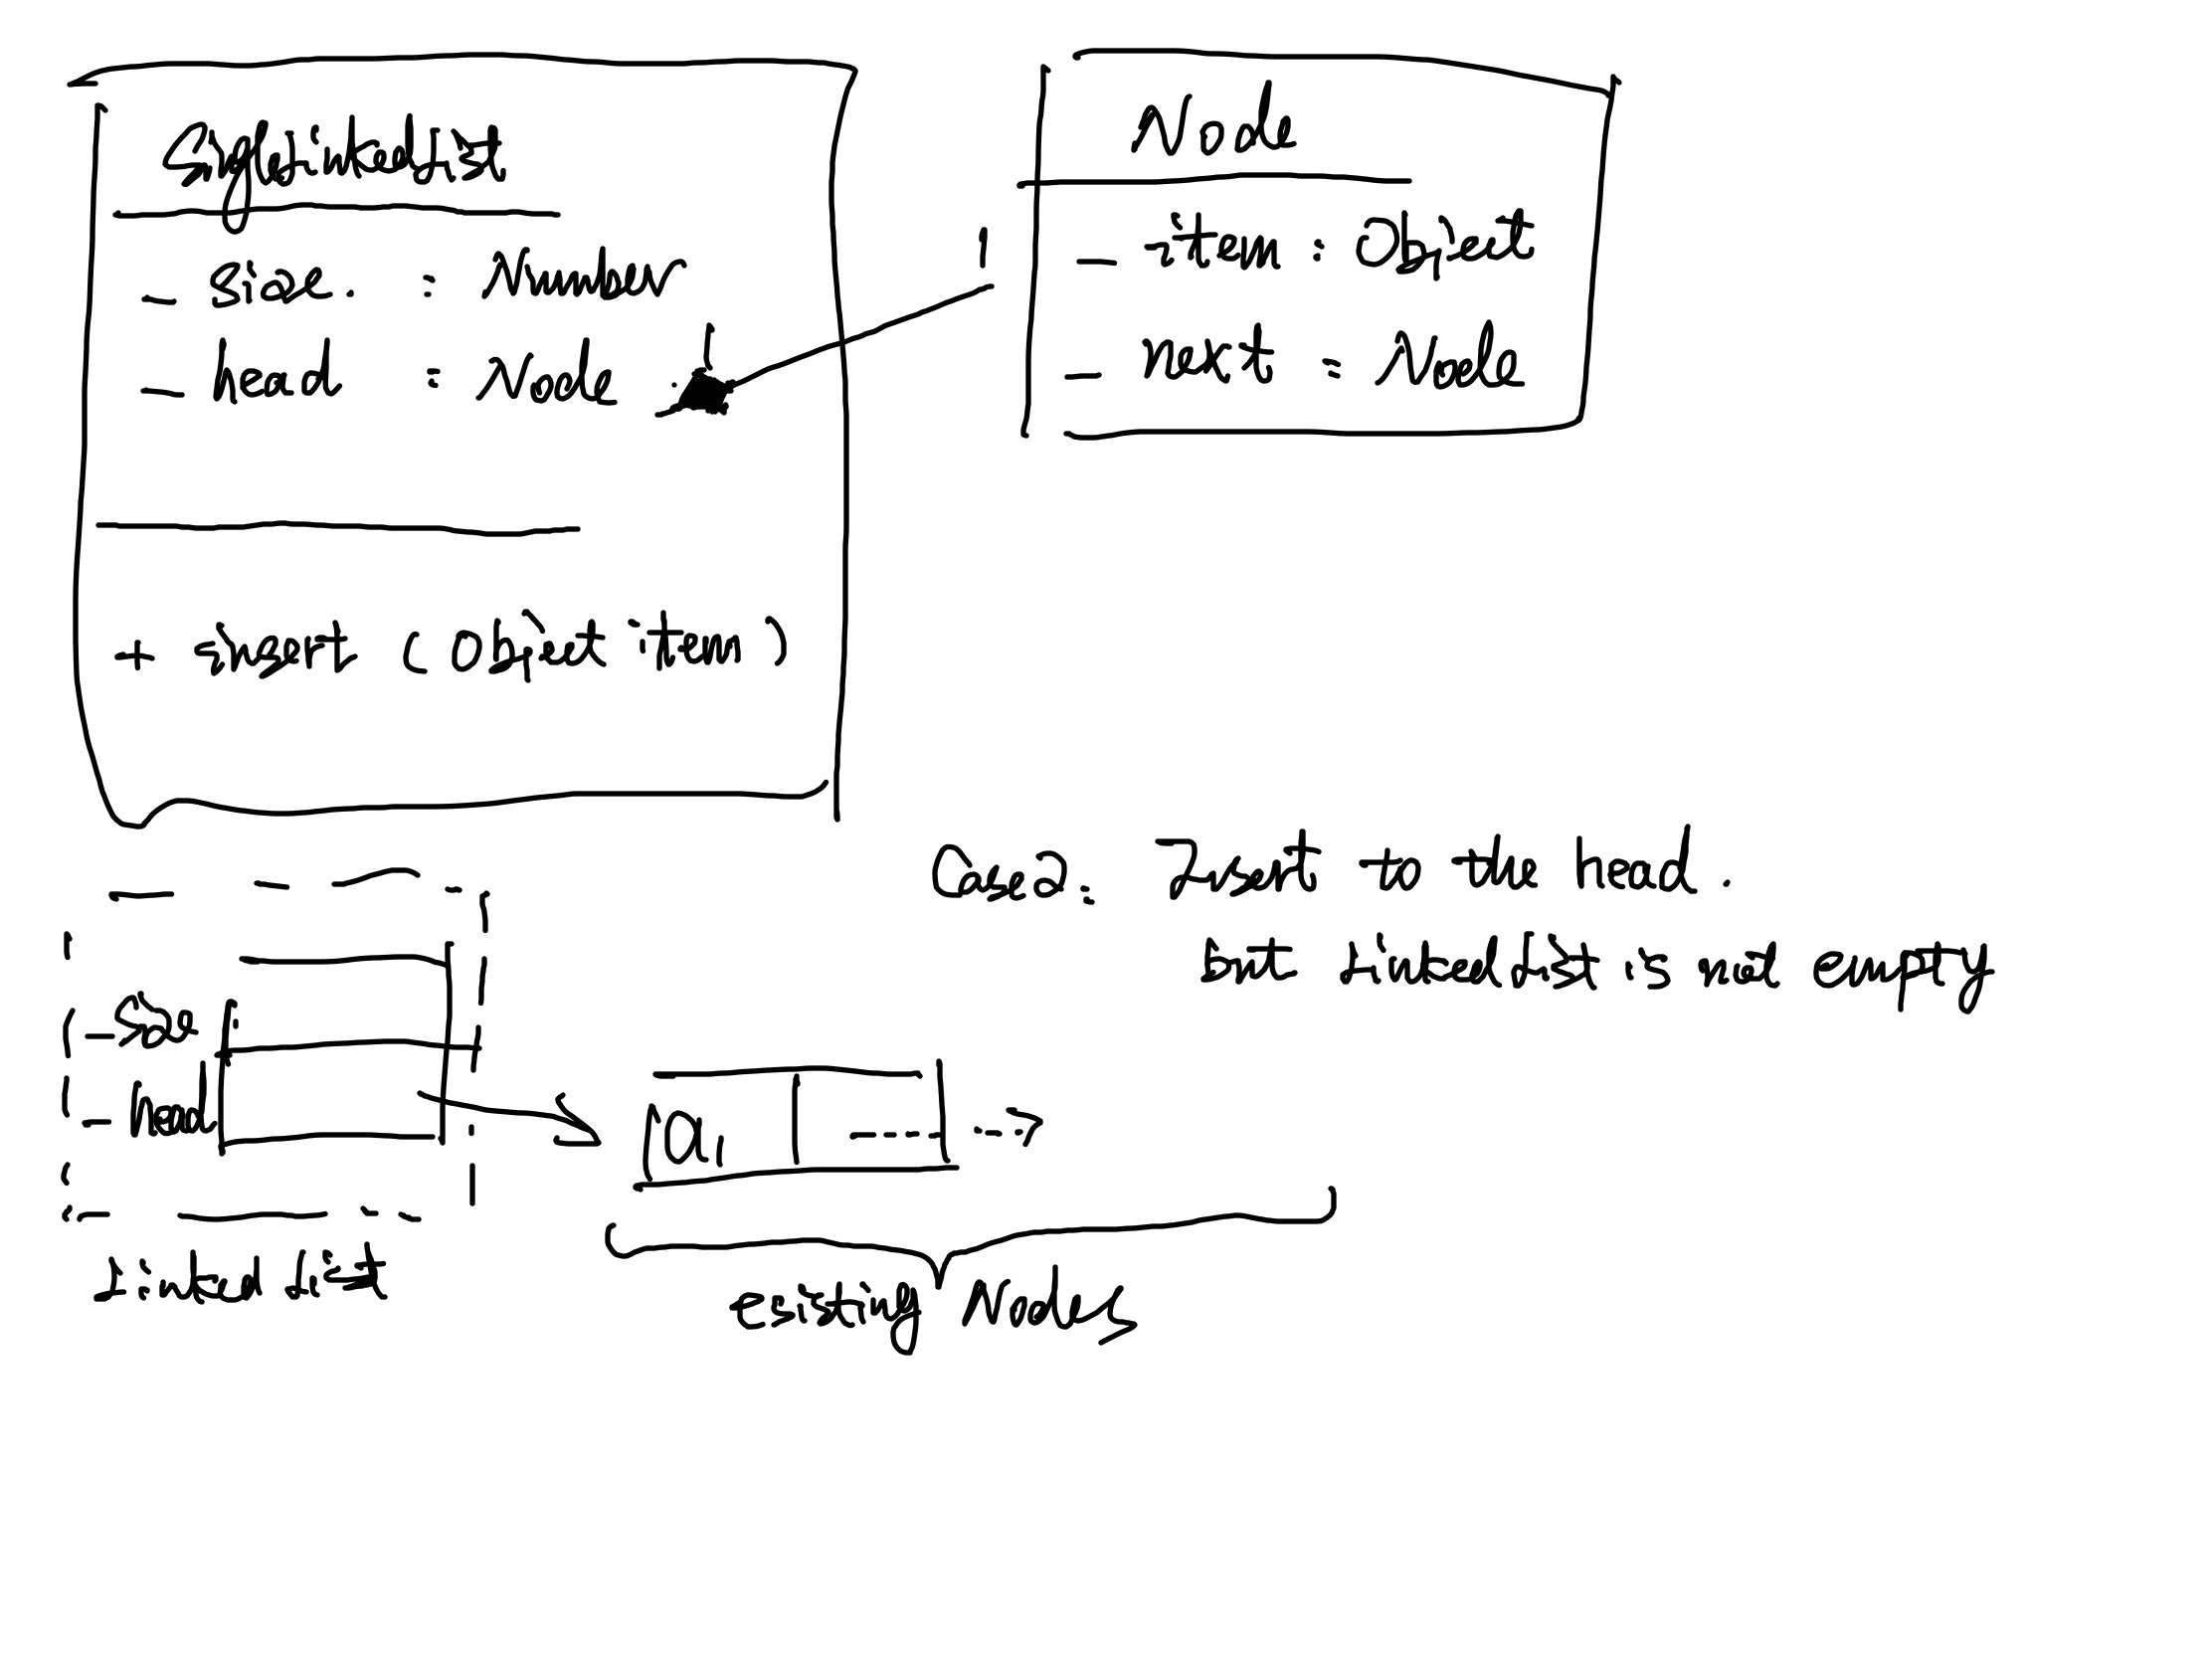 SingleLinkedList
- size : Number
- head : Node
+ insert (Object item)
1
Node
- item : Object
- next : Node
Case2: Insert to the head.
but Linked list is not empty
- size
- head
a1
Linked list
existing Nodes